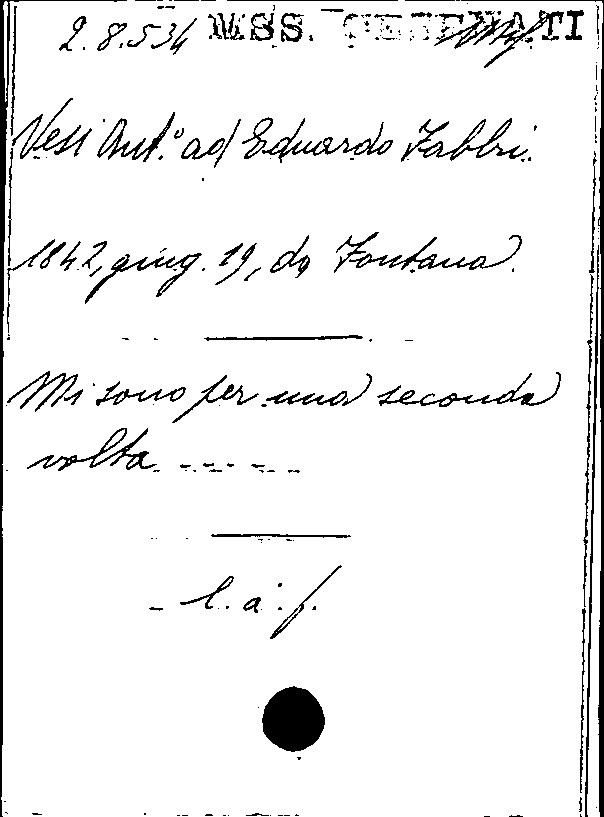 2.8.534 MSS. CESENATI
Vesi Ant.º ad Eduardo Fabbri.
1842, giug. 19, da Fontana.
Mi sono per una seconda
volta - - - - -
- l. a. f.